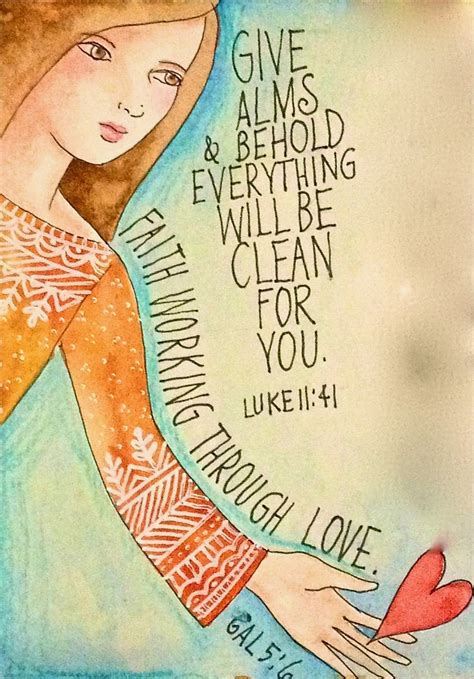 GIVE
ALMS
& BEHOLD
EVERYTHING
WILL BE
CLEAN
FOR
YOU.
LUKE 11:41
FAITH WORKING THROUGH LOVE.
GAL 5:6